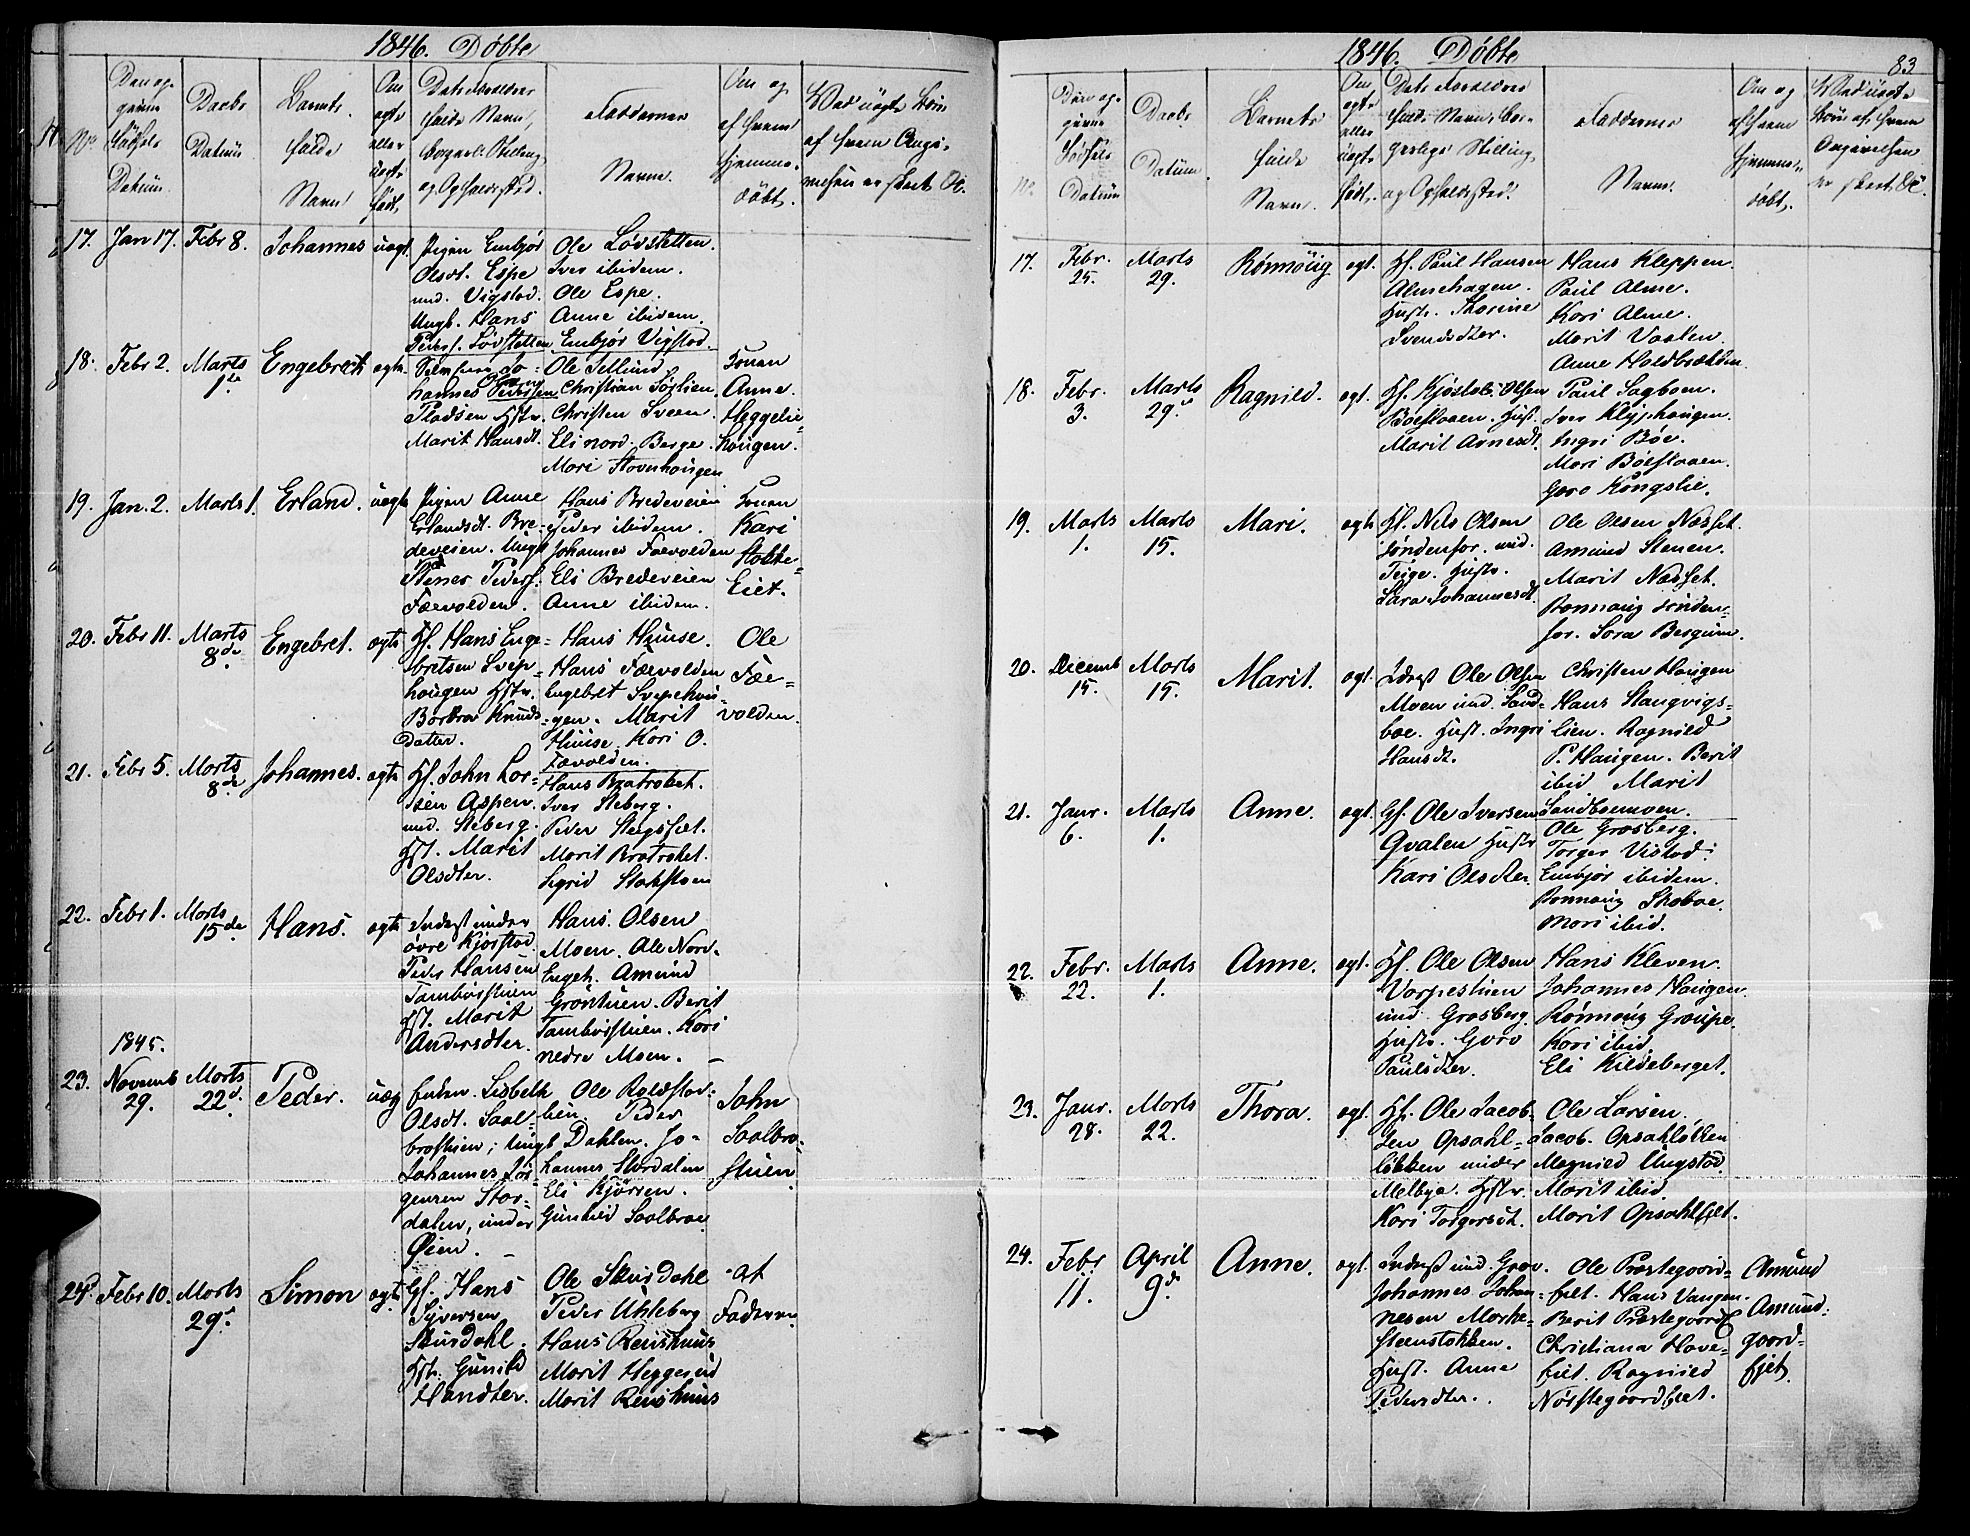 1846. Døbte
No
Den op-
givne
Fødsels
Datum.
Daabs
Datum
Barnets
fulde
Navn
Om
ægte
eller
uægte
født.
Navne.
Om og
af hvem
hjemme-
døbt.
17. Jan 17. Febr 8. Johannes uægt.
Pigen Embjør
Olsdt. Espe
und. Vigstad.
Ungk. Hans
Peders. Løvstetten
Ole Løvstetten.
Iver ibidem.
Ole Espe.
Anne ibidem.
Embjør Vigstad.
18. Febr 2. Marts 1te Engebreth ægte
Johannes Pedersen
Pladsen Hstr.
Marit Hansdt.
Ole Sellund
Christian Sørlien
Christen Sveen
Eli nord. Berge.
Mari Stovenhougen
Konen
Anne
Heggelie-
hougen.
19. Jan. 2. Marts 1. Erland. uægte
Pigen Anne
Erlandsdt. Bre-
deveien. Ungk
Stener Peders.
Færvolden.
Hans Bredeveien
Peder ibidem.
Johannes Faevolden
Eli Bredeveien
Anne ibidem.
Konen
Kari
Stokke-
Eiet.
20. Febr 11. Marts 8de. Engebret. ægte
Hf. Hans Enge-
bretsen Svep-
hougen Hstr.
Barbra Knuds-
Datter.
Hans Huuse.
Hans Færvolden
Engebret Svepehou-
gen. Marit
Huuse. Kari O.
Fævolden.
Ole
Fæe-
volden.
21. Febr 5. Marts 8de Johannes. ægte
Hf. John Lar-
sen Aspen.
und. Steberg.
Hst. Marit
Olsdter.
Hans Bratroket.
Iver Steberg.
Peder Stegsset.
Marit Bratroket.
Sigrid Stakstoen
22. Febr 1. Marts 15de. Hans. ægte
Inderst under
øvre Kjørstad
Peder Hansen
Tamburstuen
Hst. Marit
Andersdter.
Hans Olsen
Moen. Ole Nord-
Engeh. Amund
Grøntuen. Berit
Tamburstuen. Kari
nedre Moen. –
1845.
23. Novemb 29. Marts 22d. Peder. uæg
Enken Lisbeth
Olsdt. Saal-
brostuen; Ungk
Johannes Jør-
gensen Stor-
dalen, under
Øien. –
Ole Roldstad-
lien. Peder
Dahlen. Jo-
hannes Stordalen
Eli Kjørsen.
Gunhild Saalbroe
John
Saalbro-
stuen
24d Febr 10. Marts 29d Simon ægte.
Gf. Hans
Syversen
Skurdahl.
Hst. Gunild
Handter.
Ole Skurdahl
Peder Uhleberg
Hans Reushuus
Marit Heggerud
Marit Reushuus
At
Faderen
1846. Døbte
83
Daabs
Datum.
Barnets
fulde
Navn.
Faddernes
Navne.
17. Febr. 25. Marts 29. Rønnoug ægt.
Hf. Paul Hansen
Almehagen.
Hustr. Thorine
Svendsdter.
Hans Kleppen.
Paul Alme.
Kari Alme.
Marit Vaalen
Anne Holdbrækken.
18. Febr. 3. Marts 29d Ragnild. ægt.
Hf. Kjøstol Olsen
Bøeslaaen. Hust.
Marit Arnesdt.
Paul Sagboen.
Iver Klyphougen.
Ingri Bøe.
Mari Bøeslaaen.
Goro Kongslie.
19. Marts 1. Marts 15. Mari. ægte
Hf. Nils Olsen
søndenfor. und.
Teige. Hustr.
Sara Johannesdt.
Ole Olsen Næsset.
Amund Stenen.
Marit Næsset.
Rønnoug sønden-
for. Sora Bergum.
20. Decemb 15. Marts 15. Marit. ægt.
Inderst Ole Olsen
Moen und. Sand-
boe. Hust. Ingri
Hansdt.
Christen Haugen
Hans Slangvigs-
lien. Ragnild
P. Haugen. Berit
ibid Marit
Sandboemoen.
21. Janr. 6. Marts 1. Anne. ægt.
Gf. Ole Iversen
Qvalen Hustr
Kari Olsdter.
Ole Grasberg.
Torger Vistad.
Embjør ibidem.
Rønnoug Skaboe.
Mari ibid.
22. Febr. 22. Marts 1. Anne. ægt.
Hf. Ole Olsen
Vorpestuen
und Grosberg.
Hustr. Goro
Paulsdter.
Hans Kleven.
Johannes Haugen.
Rønnoug Graupe.
Kari ibid.
Eli Kildeberget.
23. Janr. 28. Marts 22. Thora. ægt.
Hf. Ole Jacob-
sen Opsahl-
løkken under
Melbye. Hstr.
Kari Torgersdt.
Ole Larsen.
Jacob. Opsahløkken
Magnild Ungstad.
Marit ibid.
Marit Opsahleiet.
24. Febr 11. April 9d. Anne. ægt.
Inderst und. Grav.
Johannes Johan-
nesen Morke-
steenstokken.
Hust. Anne
Pedersdter.
Ole Præstegaard-
eiet. Hans Vangen.
Berit Præstegaard
Christiana Hove-
eiet. Ragnild
Nørstegaardeiet.
Amund
Amund-
gaard-
Ejet.